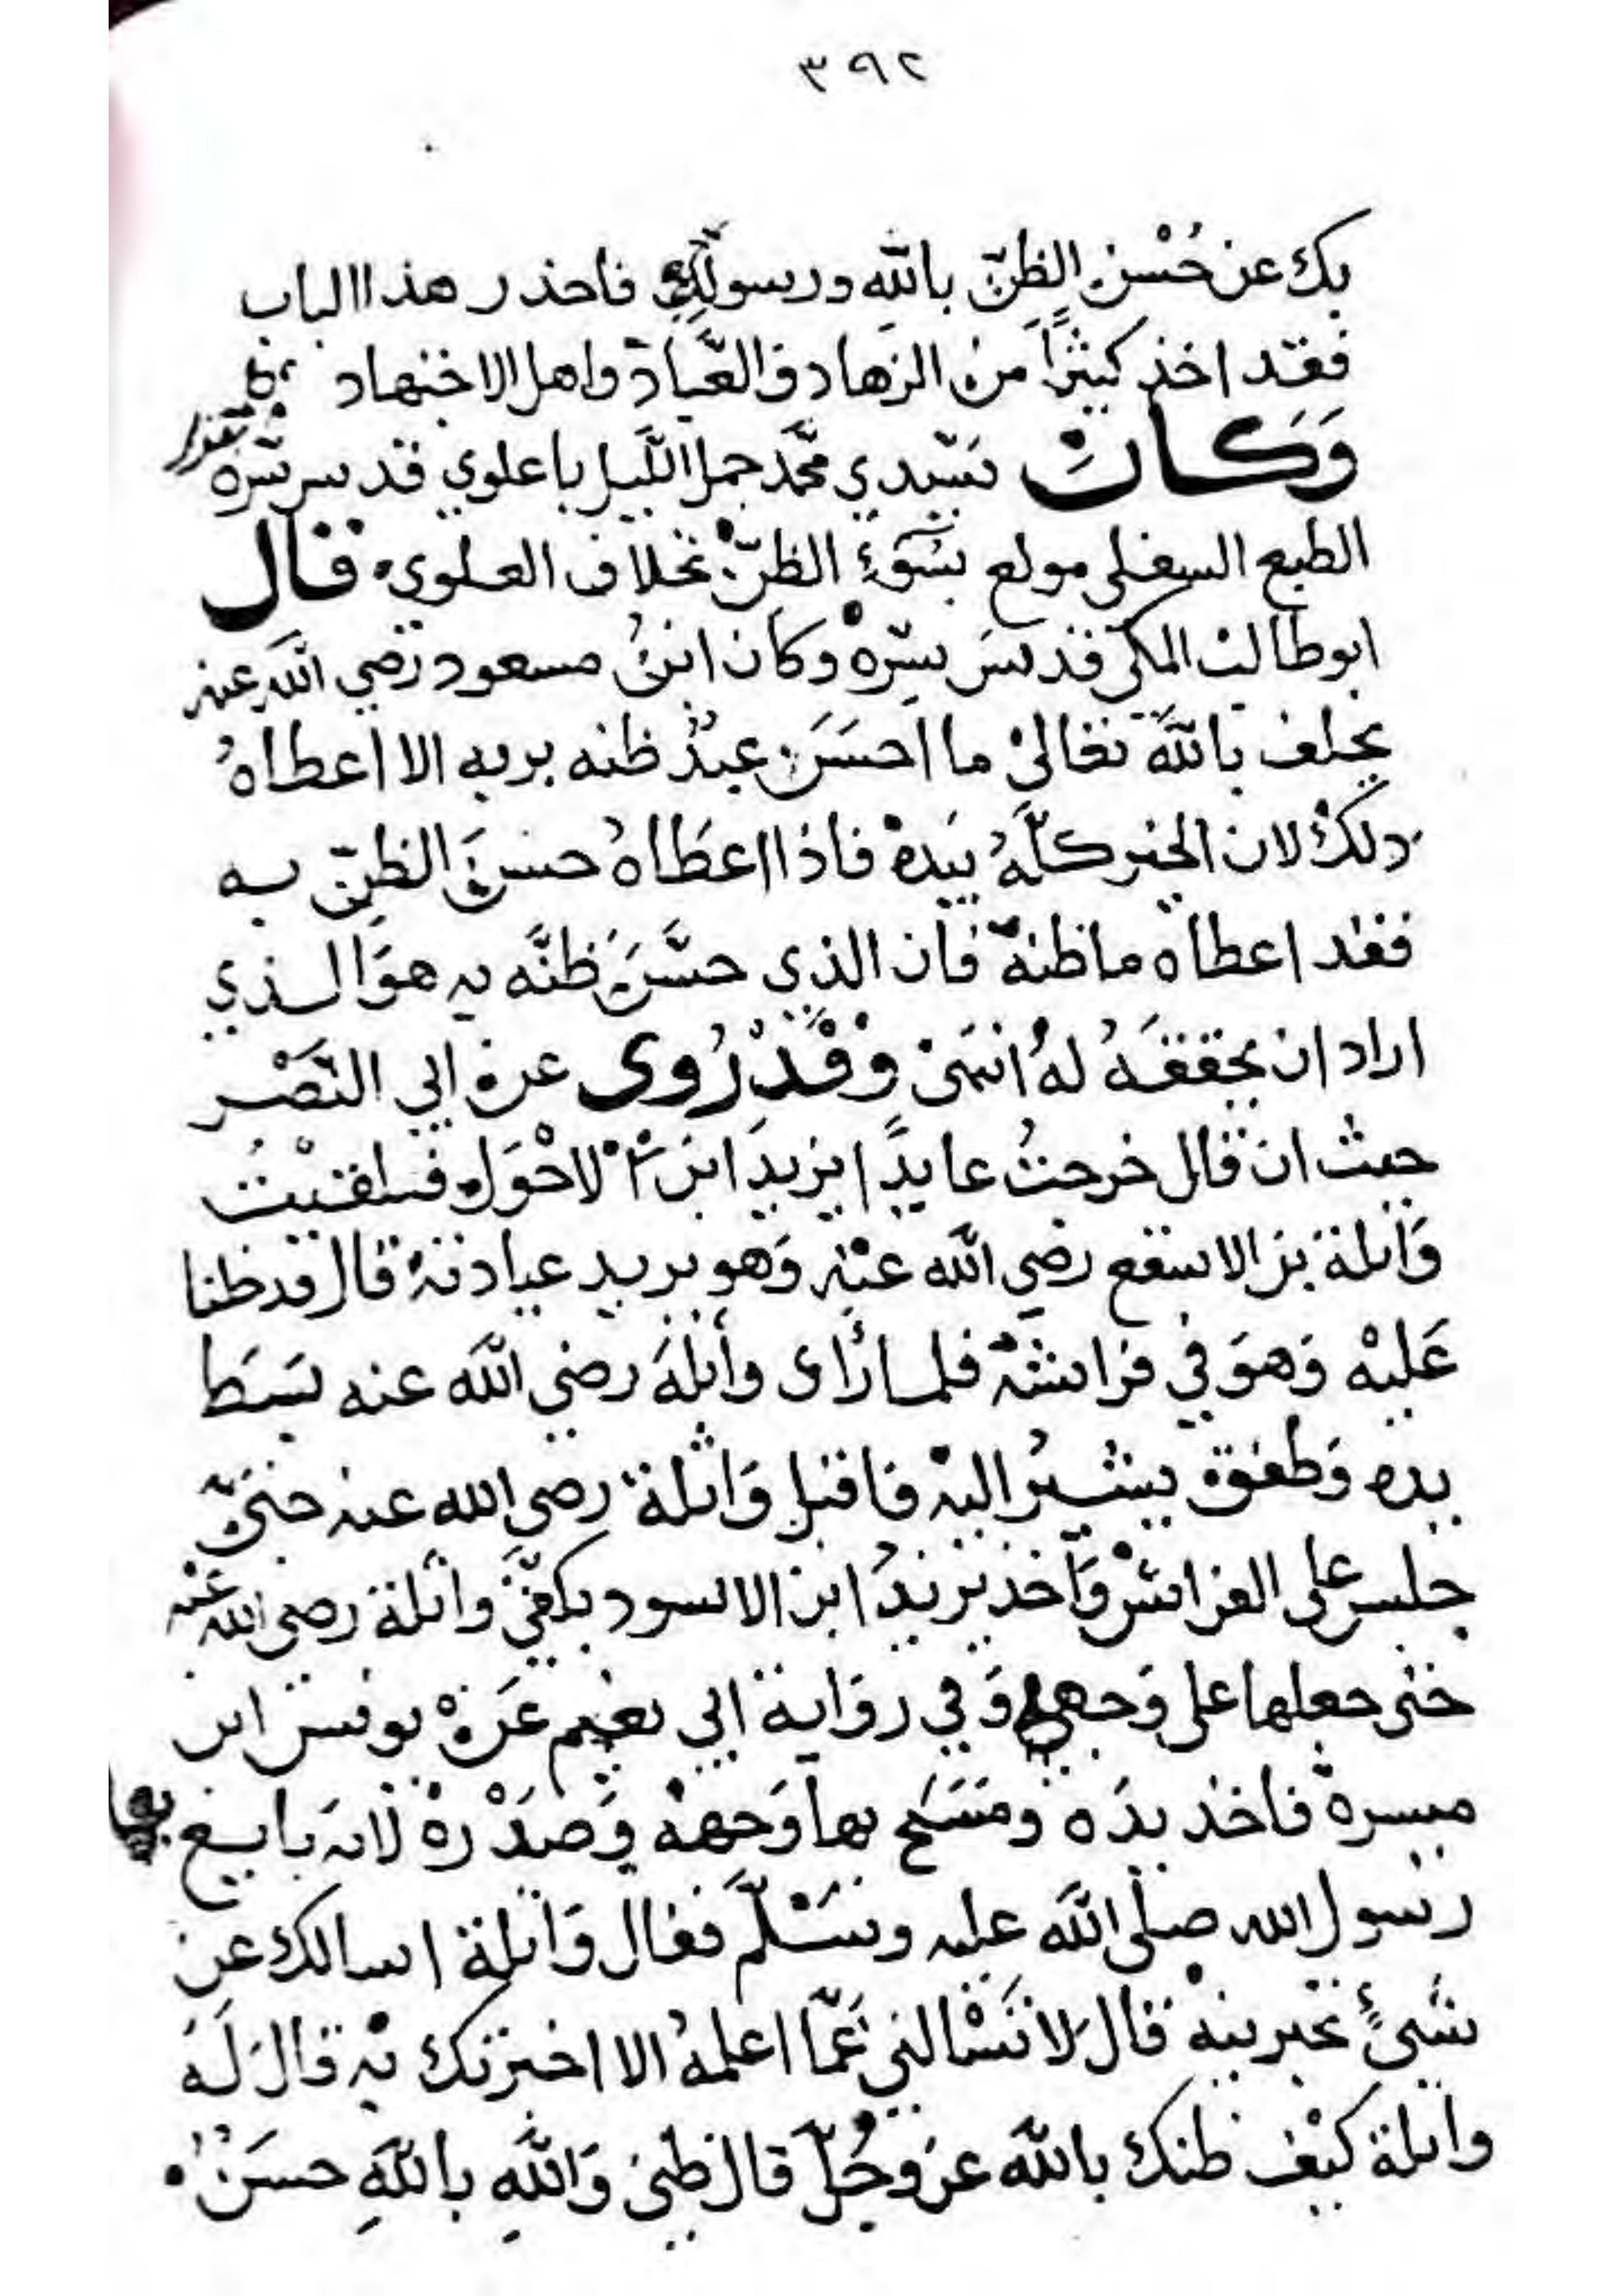 ٣٩٢
بك عن حُسْن الظنّ بالله ورسوله فاحذر هذا الباب
فقد اخذ كثيرًا من الزهاد والعُبّاد واهل الاجتهاد
وَكَانَ سَيّدي محمَّد جمل اللَّيل باعلوي قدس سِرّه يقول
الطبع السفلى مولع بسُوءِ الظنّ بخلاف العلوي قال
ابو طالب المكي قدس سِرّهْ وكان ابنُ مسعود رَضي الله عنه
يحلف بالله تعَالىْ ما احسَنَ عبدٌ ظنه بربه الا اعطاهُ
ذلكْ لان الخير كلّهُ بيَدهْ فاذا اعطَاهُ حسنَ الظنّ به
فقد اعطاه ما ظنهّ فان الذي حسَّنَ ظنَّه به هوَ الذي
اراد ان يحققَهُ لهُ انتهَىْ وَقَدْ رُوِى عن ابي النَّصْر
حيث ان قال خرجتُ عايدًا يزيدَ ابن الاحْوَل فلقيْتُ
وَاثلة بن الاسقع رضي الله عنْه وَهو يريد عيادتهُ قال فدخلنا
عَليْه وَهوَ في فراشهْ فلما رَاى واثلهَ رضي الله عنه بسَط
يده وَطفق يشيرُ اليهْ فاقبل وَاثلة رضى الله عنه حتىّ
جلس على الفراشْ وَاخذ يزيدُ ابن الاسود بكفّيَ واثلة رضى الله عنْه
حتى جعلها على وَجهه وَفي روَاية ابي نعيم عَنْ يونس ابن
ميسرهْ فاخذ يدَه ومَسَحَ بها وَجههْ وَصَدْرهْ لانه بايع بها
رسول الله صلى الله عليه وسَلّمَ فقال وَاثلة اسالك عن
شيءٍ تخبرنيهْ قالَ لا تَسْالني عَمّا اعلمهُ الا اخبرتك بهْ قالَ لَهُ
واثلة كيْف ظنك بالله عز وجَلّ قال ظني وَاللهِ باللهِ حسَنٌ